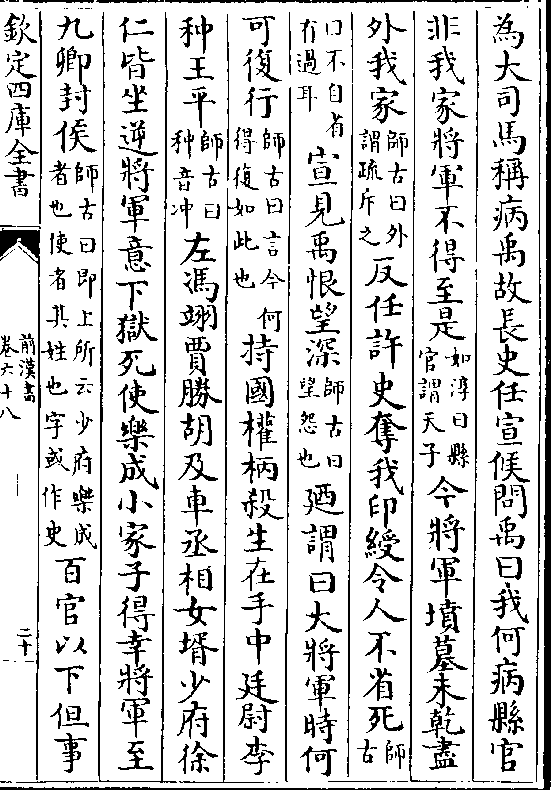 為大司馬稱病禹故長史任宣候問禹曰我何病縣官
非我家將軍不得至是如淳曰縣官謂天子今將軍墳墓未乾盡
外我家師古曰外謂疏斥之反任許史奪我印綬令人不省死師古
曰不自省有過耳宣見禹恨望深師古曰望怨也廼謂曰大將軍時何
可復行師古曰言今何得復如此也持國權柄殺生在手中廷尉李
种王平師古曰种音冲左馮翊賈勝胡及車丞相女壻少府徐
仁皆坐逆將軍意下獄死使樂成小家子得幸將軍至
九卿封侯師古曰即上所云少府樂成者也使者其姓也字或作史百官以下但事
欽定四庫全書
前漢書
卷六十八
二十